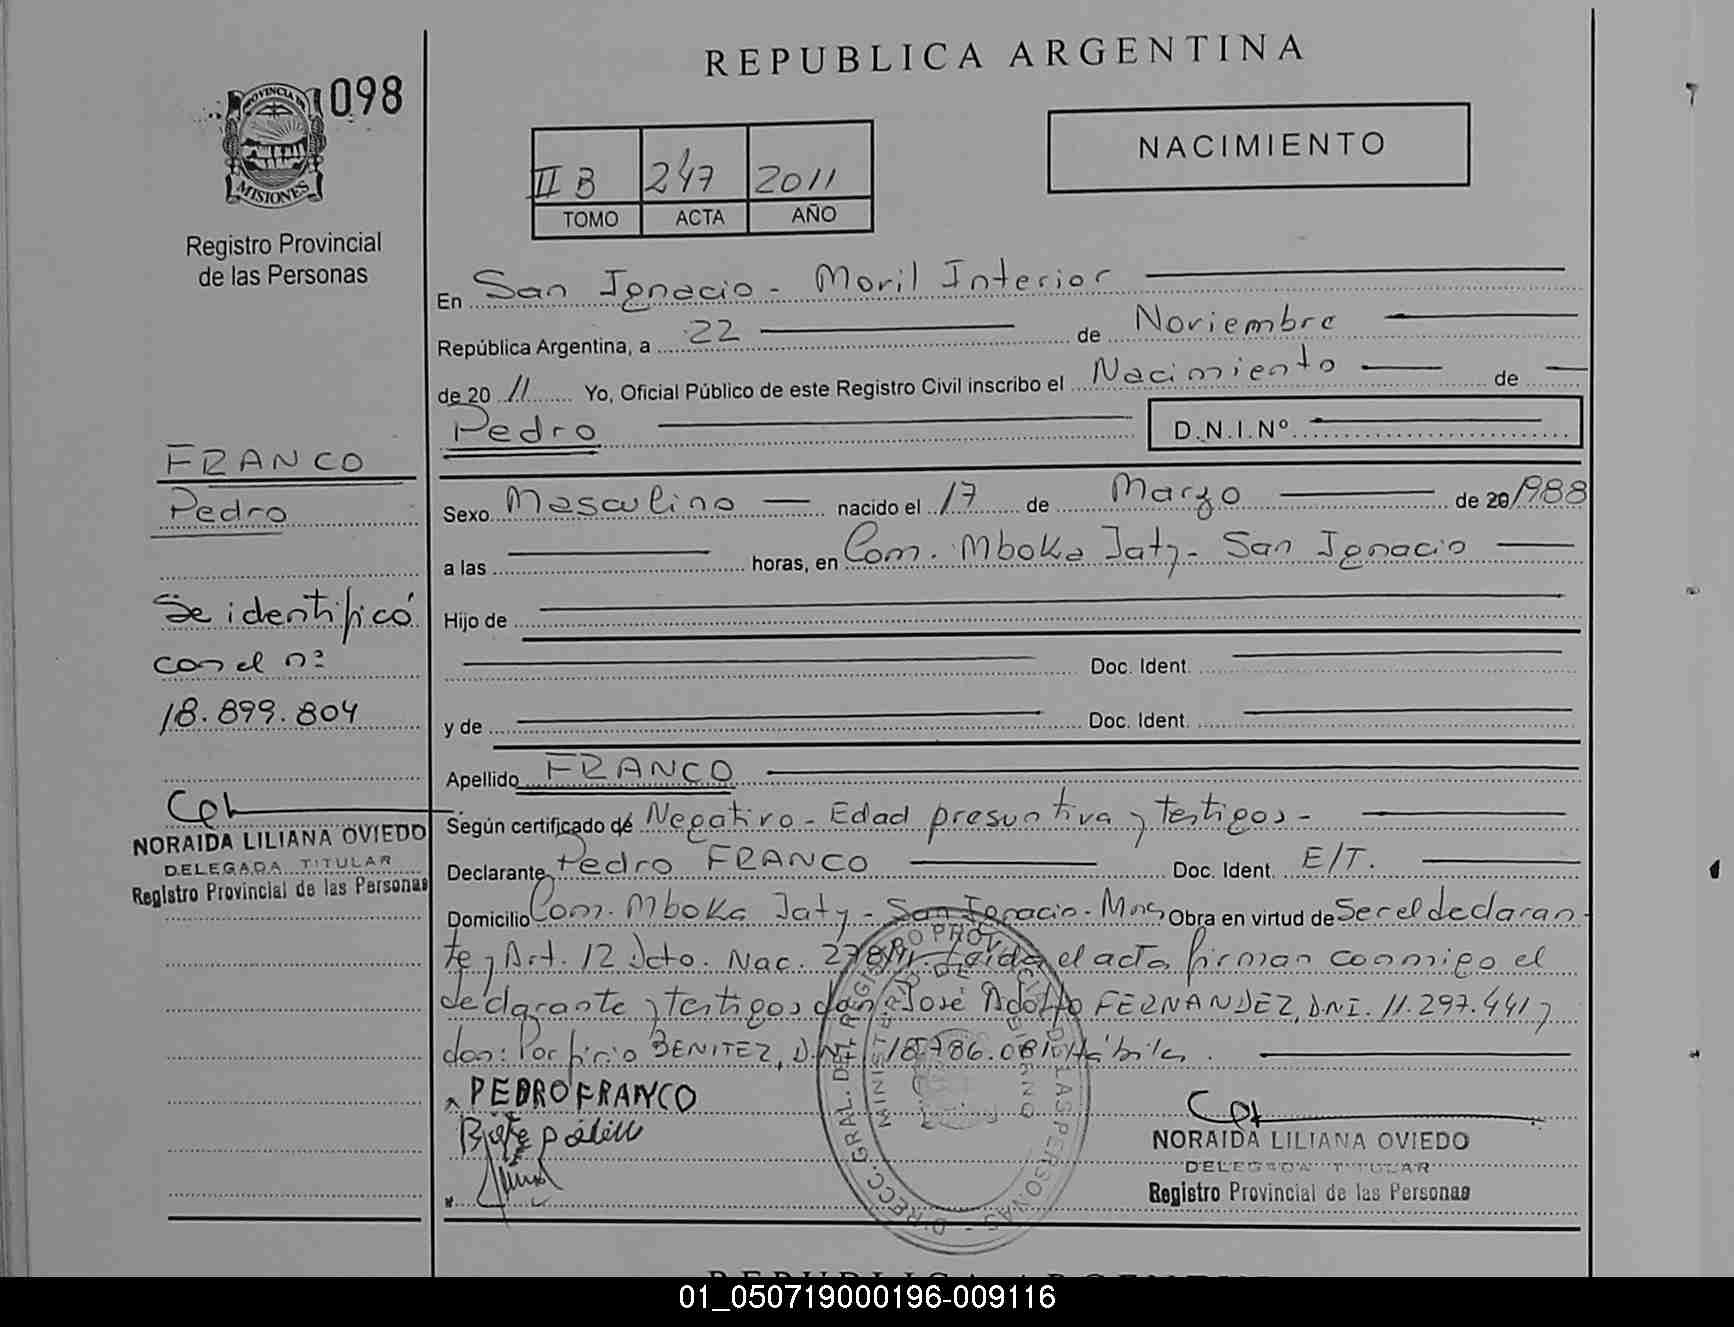 REPUBLICA ARGENTINA
098
PROVINCIA DE
MISIONES
Registro Provincial
de las Personas
NACIMIENTO
II B 247 2011
TOMO ACTA AÑO
En San Ignacio - Moril Interior
República Argentina, a 22 de Noviembre
de 20 11 Yo, Oficial Público de este Registro Civil inscribo el Nacimiento de
Pedro D.N.I.Nº
FRANCO
Pedro
Se identificó
con el nº
18.899.804
NORAIDA LILIANA OVIEDO
DELEGADA TITULAR
Registro Provincial de las Personas
Sexo Masculino nacido el 17 de Marzo de 20 1988
a las horas, en Com. Mboka Jaty - San Ignacio
Hijo de
Doc. Ident.
y de Doc. Ident.
Apellido FRANCO
Según certificado de Negativo - Edad presuntiva y testigos -
Declarante Pedro FRANCO Doc. Ident. E/T.
Domicilio Com. Mboka Jaty - San Ignacio - Mnes Obra en virtud de Ser el declaran
te y Art. 12 Dcto. Nac. Leida el acta firman conmigo el
declarante y testigos don: José Adolfo FERNANDEZ, DNI. 11.297.441 y
don: Porfirio BENITEZ, D.N.I. Hábiles.
PEDRO FRANCO
DIRECC. GRAL. DEL REGISTRO PROVINCIAL DE LAS PERSONAS
MINISTERIO DE GOBIERNO
NORAIDA LILIANA OVIEDO
DELEGADA TITULAR
Registro Provincial de las Personas
REPUBLICA ARGENTINA
01_050719000196-009116